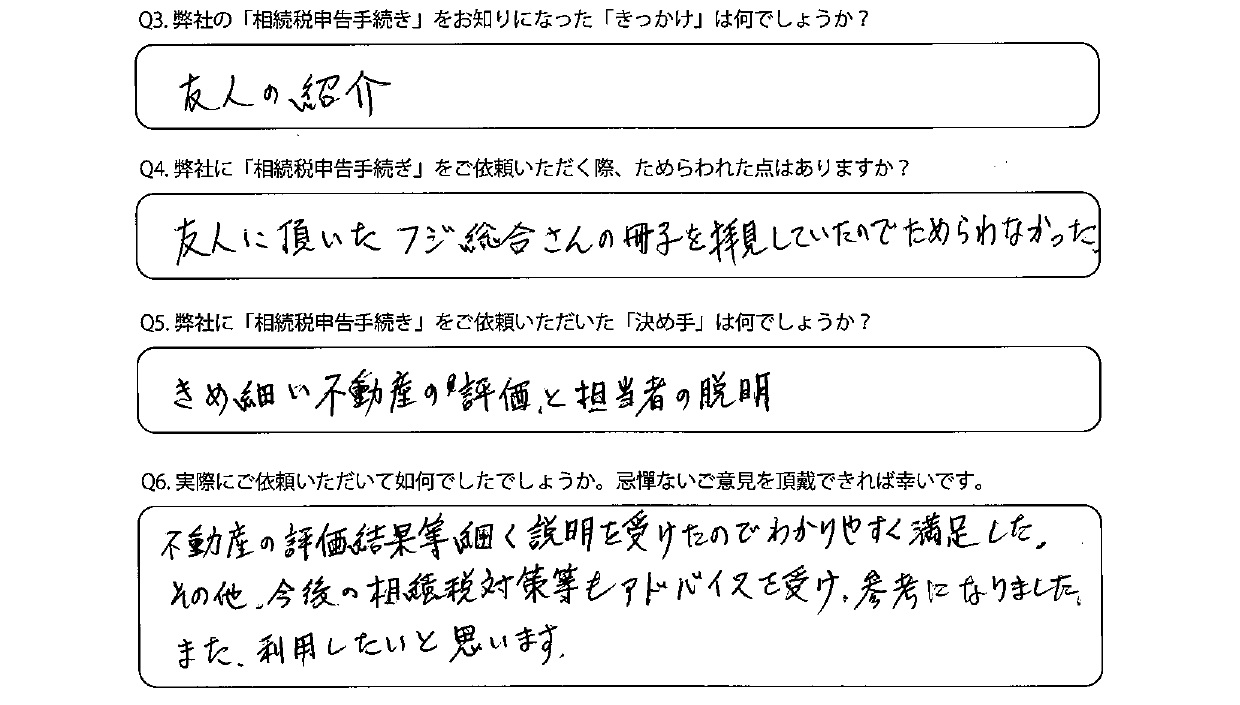 Q3. 弊社の「相続税申告手続き」をお知りになった「きっかけ」は何でしょうか？
友人の紹介
Q4. 弊社に「相続税申告手続き」をご依頼いただく際、ためらわれた点はありますか？
友人に頂いたフジ総合さんの冊子を拝見していたのでためらわなかった。
Q5. 弊社に「相続税申告手続き」をご依頼いただいた「決め手」は何でしょうか？
きめ細い不動産の評価、と担当者の説明
Q6. 実際にご依頼いただいて如何でしたでしょうか。忌憚ないご意見を頂戴できれば幸いです。
不動産の評価結果等細く説明を受けたのでわかりやすく満足した。
その他、今後の相続税対策等もアドバイスを受け、参考になりました。
また、利用したいと思います。